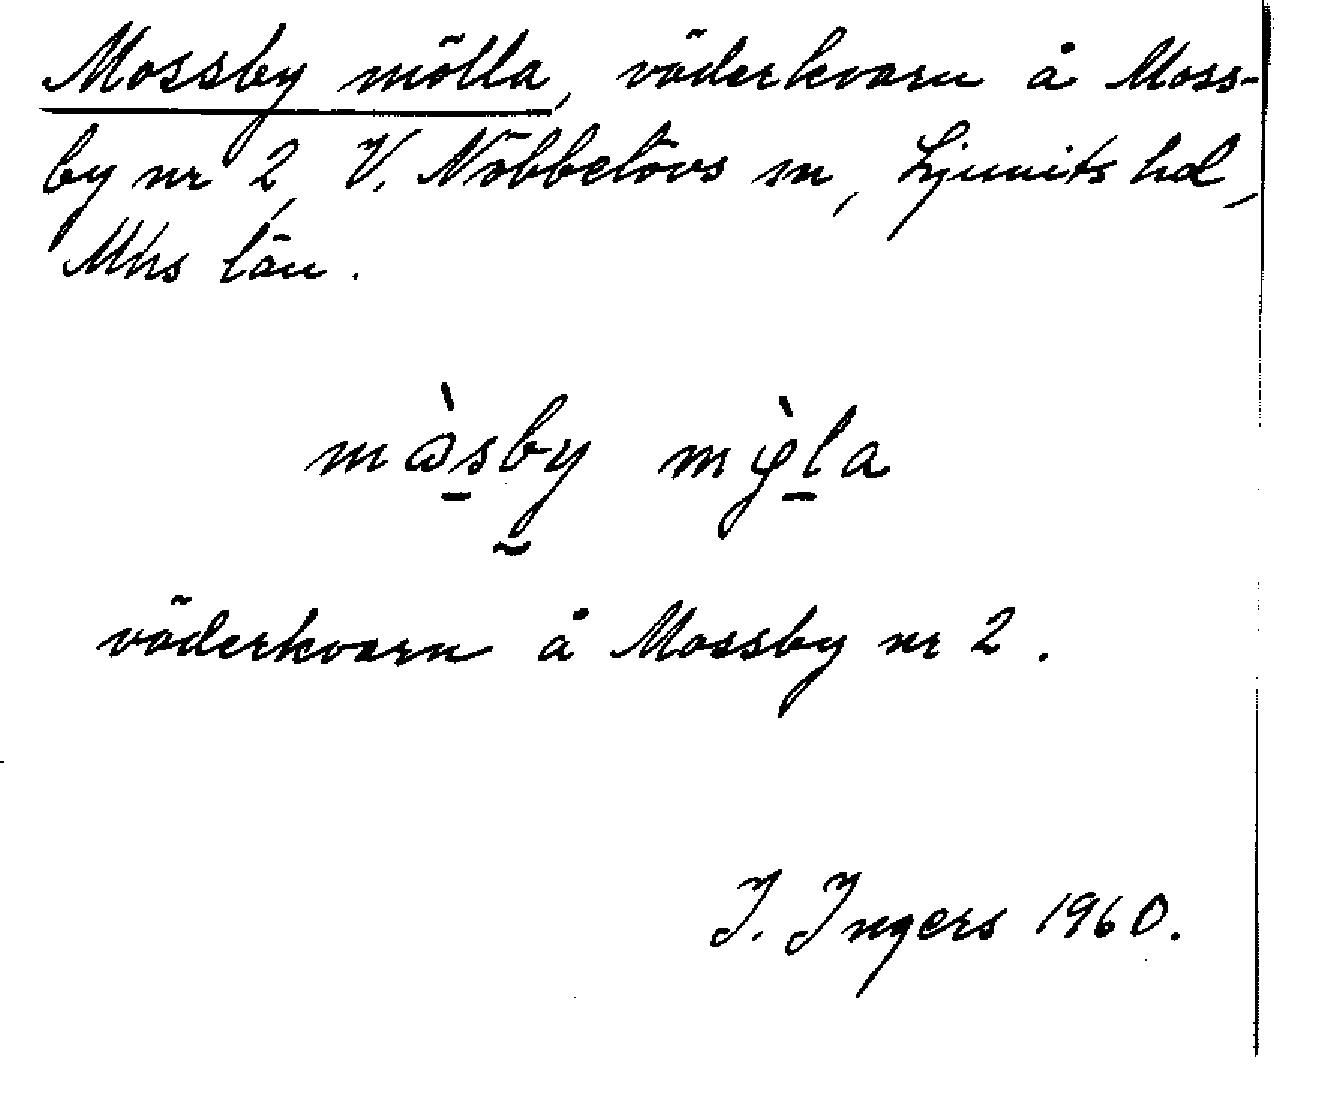 Mossby mölla, väderkvarn å Moss-
by nr 2, V. Nöbbelövs sn, Ljunits hd,
Mhs län.
måsby mỳla
väderkvarn å Mossby nr 2.
I. Ingers 1960.